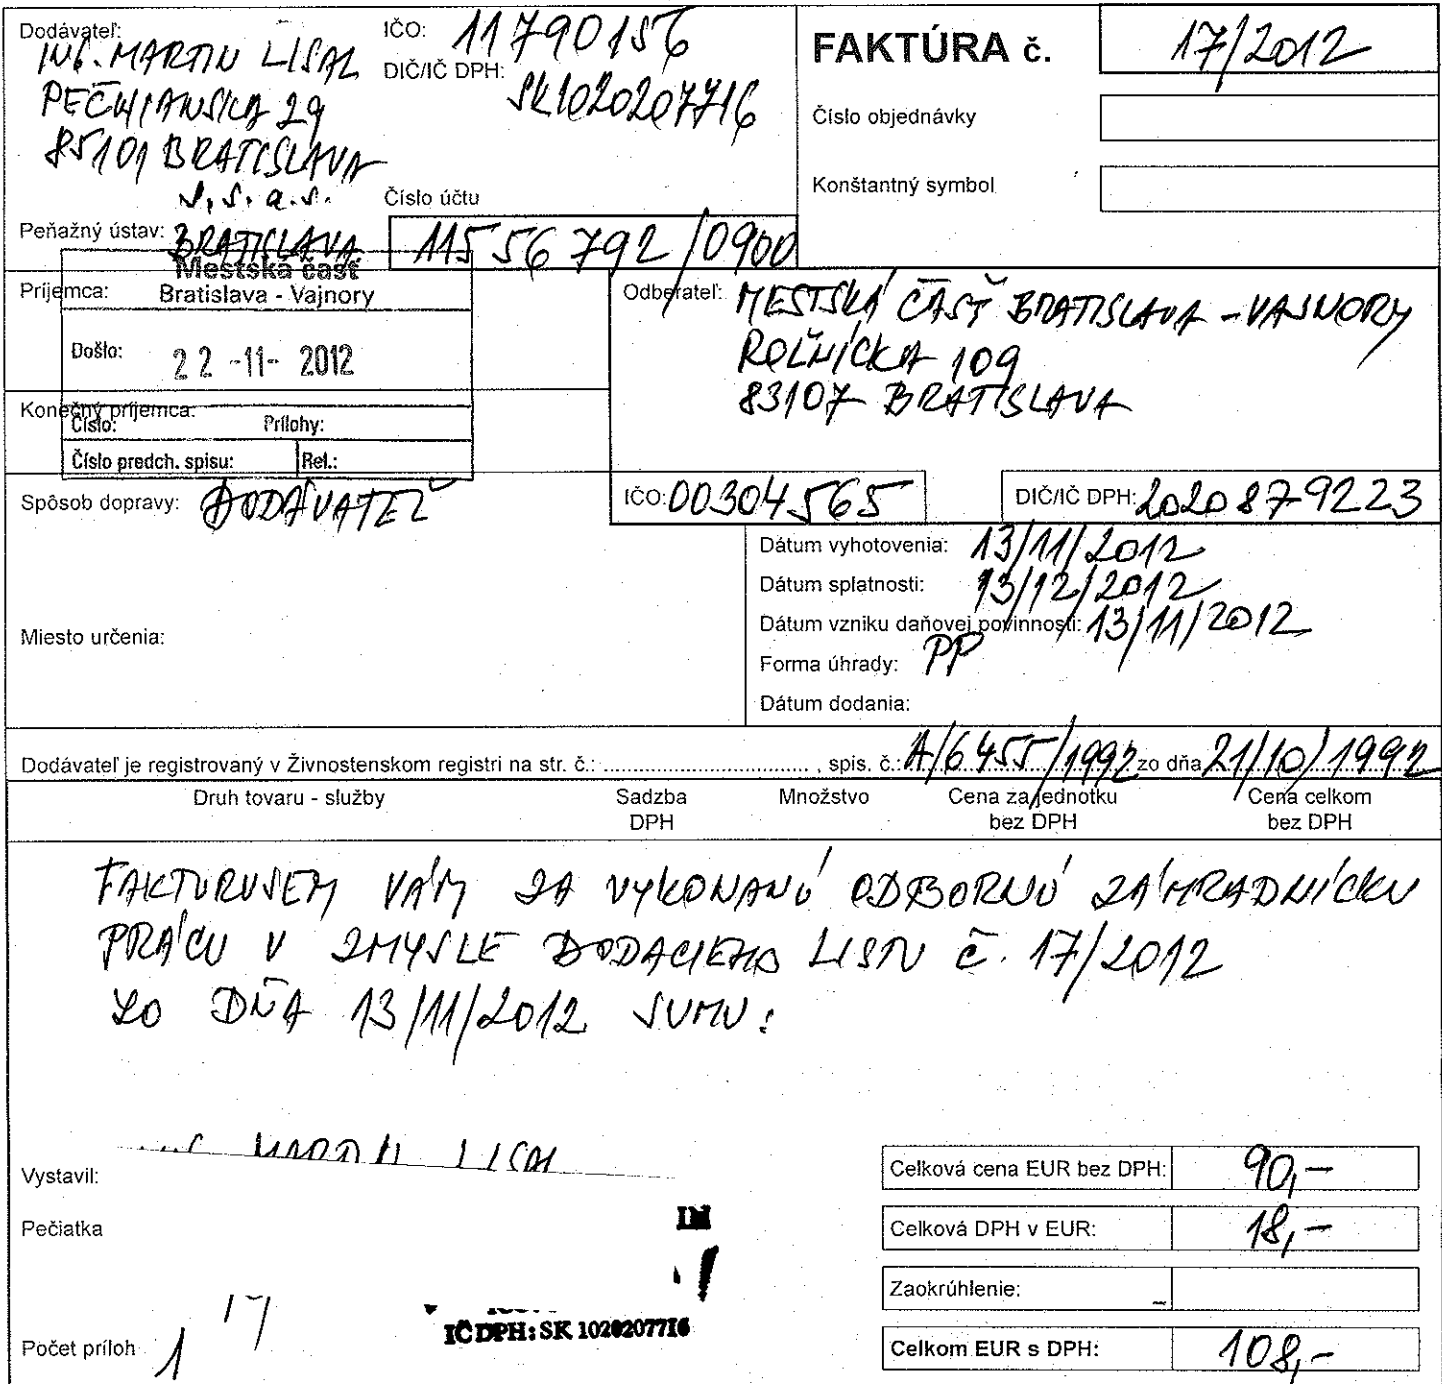 Dodávateľ:
ING. MARTIN LISAL
PEČNIANSKA 29
85101 BRATISLAVA
IČO: 11790156
DIČ/IČ DPH: SK1020207716
S.S. a.s.
Peňažný ústav: BRATISLAVA
Číslo účtu
11556792/0900
FAKTÚRA č. 17/2012
Číslo objednávky
Konštantný symbol
Príjemca:
Mestská časť
Bratislava - Vajnory
Došlo: 22 -11- 2012
Konečný príjemca:
Číslo: Prílohy:
Číslo predch. spisu: Ref.:
Odberateľ: MESTSKÁ ČASŤ BRATISLAVA - VAJNORY
ROĽNÍCKA 109
83107 BRATISLAVA
IČO: 00304565 DIČ/IČ DPH: 2020879223
Spôsob dopravy: DODÁVATEĽ
Miesto určenia:
Dátum vyhotovenia: 13/11/2012
Dátum splatnosti: 13/12/2012
Dátum vzniku daňovej povinnosti: 13/11/2012
Forma úhrady: PP
Dátum dodania:
Dodávateľ je registrovaný v Živnostenskom registri na str. č.: .................................... , spis. č.: A/6455/1992 zo dňa 21/10/1992
Druh tovaru - služby Sadzba DPH Množstvo Cena za jednotku bez DPH Cena celkom bez DPH
FAKTURUJEM VÁM ZA VYKONANÚ ODBORNÚ ZÁHRADNÍCKU
PRÁCU V ZMYSLE DODACIEHO LISTU č. 17/2012
ZO DŇA 13/11/2012 SUMU:
Vystavil: ING. MARTIN LISAL
Pečiatka
IČ DPH: SK 1020207716
Počet príloh 1
Celková cena EUR bez DPH: 90,-
Celková DPH v EUR: 18,-
Zaokrúhlenie:
Celkom EUR s DPH: 108,-